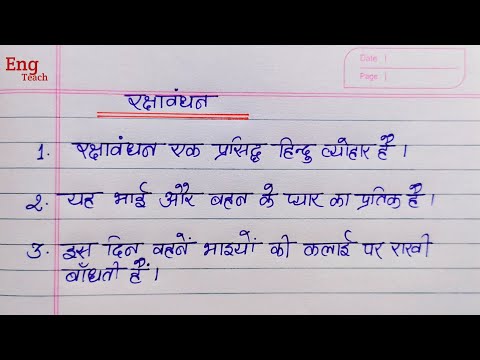 Eng
Teach
Date |
Page |
रक्षावंधन
1. रक्षावंधन एक प्रसिद्ध हिन्दु त्योहार है।
२. यह भाई और बहन के प्यार का प्रतिक है।
3. इस दिन वहनें भाइयों की कलाई पर राखी
बाँधती हैं।